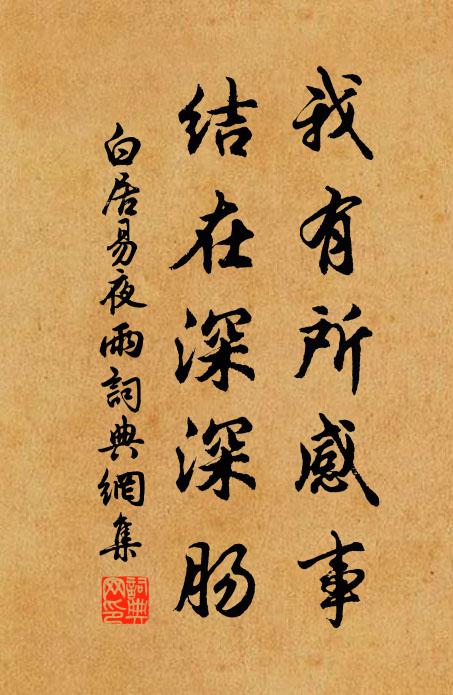 我有所感事
结在深深肠
白居易夜雨詞典網集
詞典网印